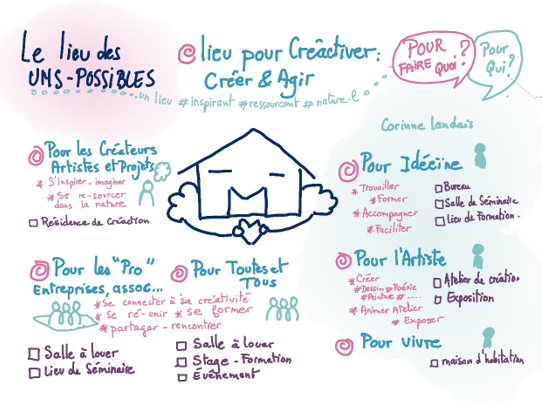 Le lieu des
UMS-POSSIBLES
lieu pour Créactiver:
Créer & Agir
un lieu #inspirant #ressourçant #nature-l
POUR
FAIRE quoi?
Pour
Qui?
Corinne Landais
Pour les Créateurs
Artistes et Projets
* S'inspirer-imaginer
* Se re-sourcer
dans la nature
Résidence de Créaction
Pour les "Pro"
Entreprises, assoc...
Pour Toutes et
Tous
* Se connecter à sa créativité
* se ré-unir * se former
* partager-rencontrer
Salle à louer
Lieu de Séminaire
Salle à louer
Stage-Formation
Événement
Pour Idéeine
* Travailler
* Former
* Accompagner
* Faciliter
Bureau
Salle de Séminaire
Lieu de Formation.
Pour l'Artiste
* Créer
#Dessin #Poésie
#Peinture #.....
* Animer Atelier
* Exposer
Atelier de création
Exposition
Pour vivre
maison d'habitation